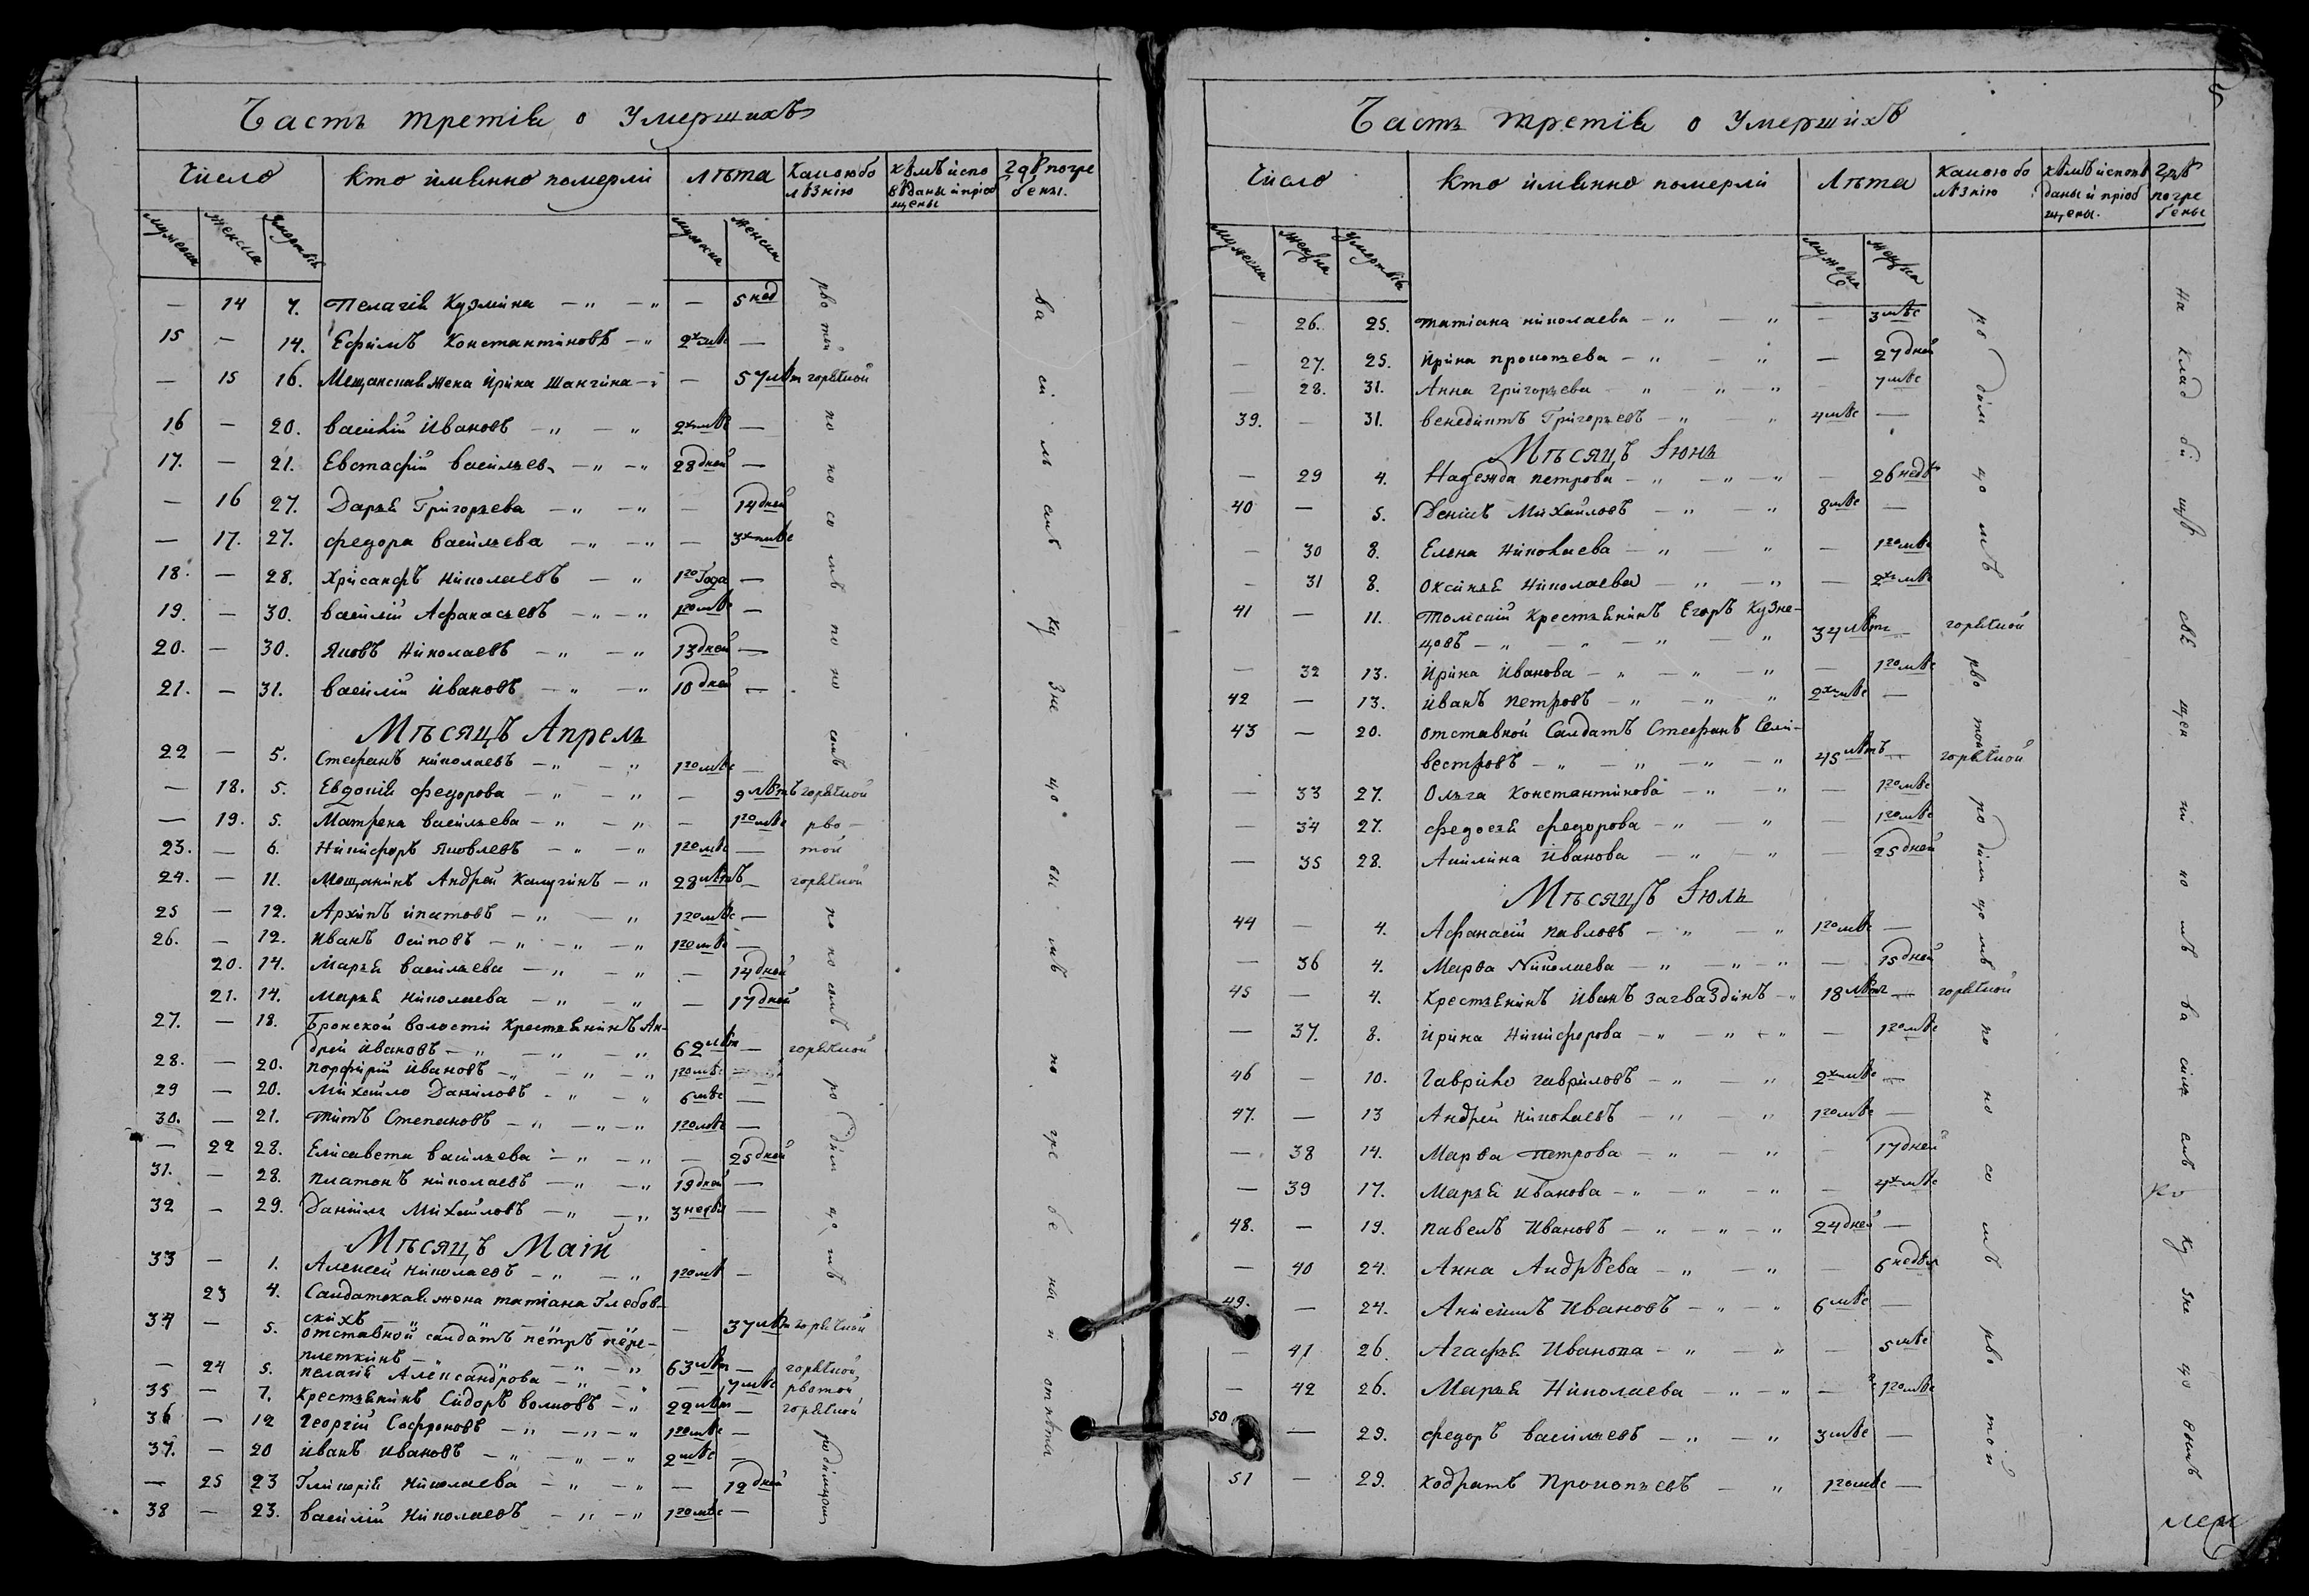 Часть третія о Умершихъ
Число
Кто именно померли
Лѣта
Какою болѣзнію
Кѣмъ исповѣданы и пріобщены
Гдѣ погребены.
Мужеска Женска Умертвія Мужеска Женска
— 14 7. Пелагія Кузмина — „ — „ — 5 нед
15 — 14. Ефимъ Константиновъ — „ 2хъ мѣс —
— 15 16. Мещанская жена Ирина Шангина — „ — 57 лѣт горячкой
16 — 20. Василій Ивановъ — „ — „ 2хъ мѣс —
17. — 21. Евстафій Васильев — „ — „ 28 дней —
— 16 27. Дарья Григорьева — „ — „ — 14 дней
— 17. 27. Федора Васильева — „ — „ — 3хъ мѣс
18. — 28. Хрисанфъ Николаевъ — „ 1го Года —
19. — 30. Василій Афанасьевъ — „ — „ 1го мѣс —
20. — 30. Яковъ Николаевъ — „ — „ 13 дней —
21. — 31. Василій Ивановъ — „ — „ 10 дней —
Мѣсяцъ Апрель
22 — 5. Стефанъ Николаевъ — „ — „ 1го мѣс —
— 18. 5. Евдокія Федорова — „ — „ — 9 лѣтъ горячкой
— 19. 5. Матрена Васильева — „ — „ — 1го мѣс рво-
23. — 6. Никифоръ Яковлевъ — „ — „ 1го мѣс — той
24. — 11. Мещанинъ Андрей Калугинъ — „ 28 лѣтъ — горячкой
25 — 12. Архипъ Ипатовъ — „ — „ 1го мѣс —
26. — 12. Иванъ Осиповъ — „ — „ — „ 1го мѣс —
20. 14. Марья Васильева — „ — „ — 14 дней
21. 14. Марья Николаева — „ — „ — 17 дней
27. — 18. Бронской волости Крестьянинъ Ан-
дрей Ивановъ — „ — „ — „ 62 лѣт — горячкой
28. — 20. Порфирій Ивановъ — „ — „ — „ 1го мѣс —
29 — 20. Михайло Даниловъ — „ — „ 6 мѣс —
30. — 21. Титъ Степановъ — „ — „ — „ 1го мѣс —
— 22 28. Елисавета Васильева — „ — „ — 25 дней
31. — 28. Платонъ Николаевъ — „ — „ 19 дней —
32 — 29. Даніилъ Михайловъ — „ — „ 3 недѣл —
Мѣсяцъ Маій
33 — 1. Алексей Николаевъ — „ — „ 1го мѣ —
23 4. Салдатская жена Татіана Глебов-
скихъ — 37 лѣт горячкой
34 — 5. Отставной салдатъ Петръ Пере-
плеткинъ — „ — „ — „ 63 лѣт — горячкой
— 24 5. Пелагія Александрова — „ — „ — 7 мѣс рвотой
35 — 7. Крестьянинъ Сидоръ Волковъ — „ 22 лѣт — горячкой
36 — 12 Георгій Софроновъ — „ — „ — „ 1го мѣс —
37. — 20 Иванъ Ивановъ — „ — „ — „ 2 мѣс —
— 25 23 Гликерія Николаева — „ — „ — 12 дней
38 — 23. Василій Николаевъ — „ — „ 1го мѣс —
рвотой
поносомъ
поносомъ
поносомъ
родимцомъ
родимцомъ
Васильевскую Кузнецовымъ погребены и отпѣты
5
Часть третія о Умершихъ
Число
Кто именно померли
Лѣта
Какою болѣзнію
Кѣмъ исповѣданы и пріобщены.
Гдѣ погребены
Мужеска Женска Умертвія Мужеска Женска
— 26. 25. Татіана Николаева — „ — „ — 3 мѣс
— 27. 25. Ирина Прокопьева — „ — „ — 27 дней
— 28. 31. Анна Григорьева „ — „ — „ — 7 мѣс
39. — 31. Венедиктъ Григорьевъ — „ — „ 4 мѣс —
Мѣсяцъ Іюнь
— 29 4. Надежда Петрова — „ — „ — „ — 26 недѣ
40 — 5. Денисъ Михайловъ — „ — „ 8 мѣс —
— 30 8. Елена Николаева — „ — „ — 1го мѣс
— 31 8. Оксинья Николаева — „ — „ — 2хъ мѣс
41 — 11. Томскій Крестьянинъ Егоръ Кузне-
цовъ — „ — „ — „ — „ 34 лѣтъ — горячкой
— 32 13. Ирина Иванова — „ — „ — „ — 1го мѣс
42 — 13. Иванъ Петровъ — „ — „ — „ 2хъ мѣс —
43 — 20. Отставной Салдатъ Стефанъ Сели-
вестровъ — „ — „ — „ — „ 45 лѣтъ — горячкой
— 33 27. Ольга Константинова — „ — „ — 1го мѣс
— 34 27. Федосья Федорова — „ — „ — 1го мѣс
— 35 28. Акилина Иванова — „ — „ — 25 дней
Мѣсяцъ Іюль
44 — 4. Афанасій Павловъ — „ — „ 1го мѣс —
— 36 4. Марѳа Николаева — „ — „ — „ — 15 дней
45 — 4. Крестьянинъ Иванъ Загваздинъ — „ 18 лѣтъ — горячкой
— 37. 8. Ирина Никифорова — „ — „ — „ — 1го мѣс
46 — 10. Гаврило Гавриловъ — „ — „ 2хъ мѣс —
47. — 13 Андрей Николаевъ — „ — „ 1го мѣс —
— 38 14. Марѳа Петрова — „ — „ — 17 дней
— 39 17. Марья Иванова — „ — „ — „ — 4х мѣс
48. — 19. Павелъ Ивановъ — „ — „ — „ 24 дней —
— 40 24. Анна Андрѣева — „ — „ — 6 недѣл
49. — 24. Анисимъ Ивановъ — „ — „ 6 мѣс —
— 41 26. Агафья Иванова — „ — „ — 5 мѣс
— 42 26. Марья Николаева — „ — „ — 1го мѣс
50. — 29. Федоръ Васильевъ — „ — „ 3 мѣс —
51 — 29. Кодратъ Прокопьевъ — „ 1го мѣс —
родимцомъ
рвотой
родимцомъ
поносомъ
рвотой
На кладбищѣ